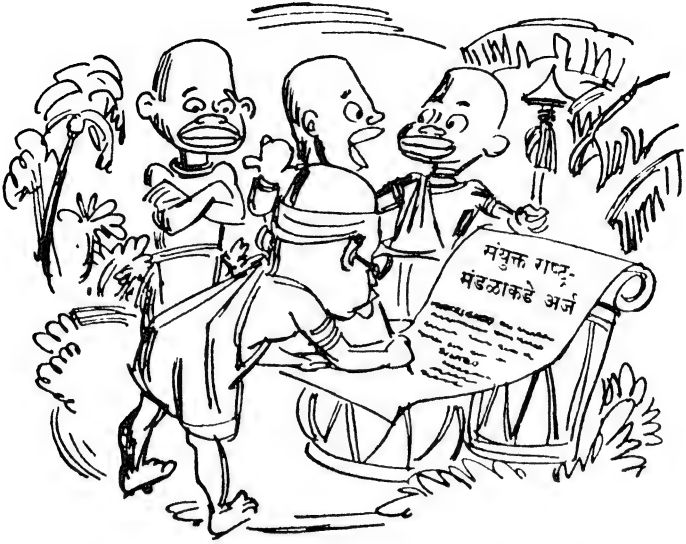 संयुक्त राष्ट्र-
मंडळाकडे अर्ज